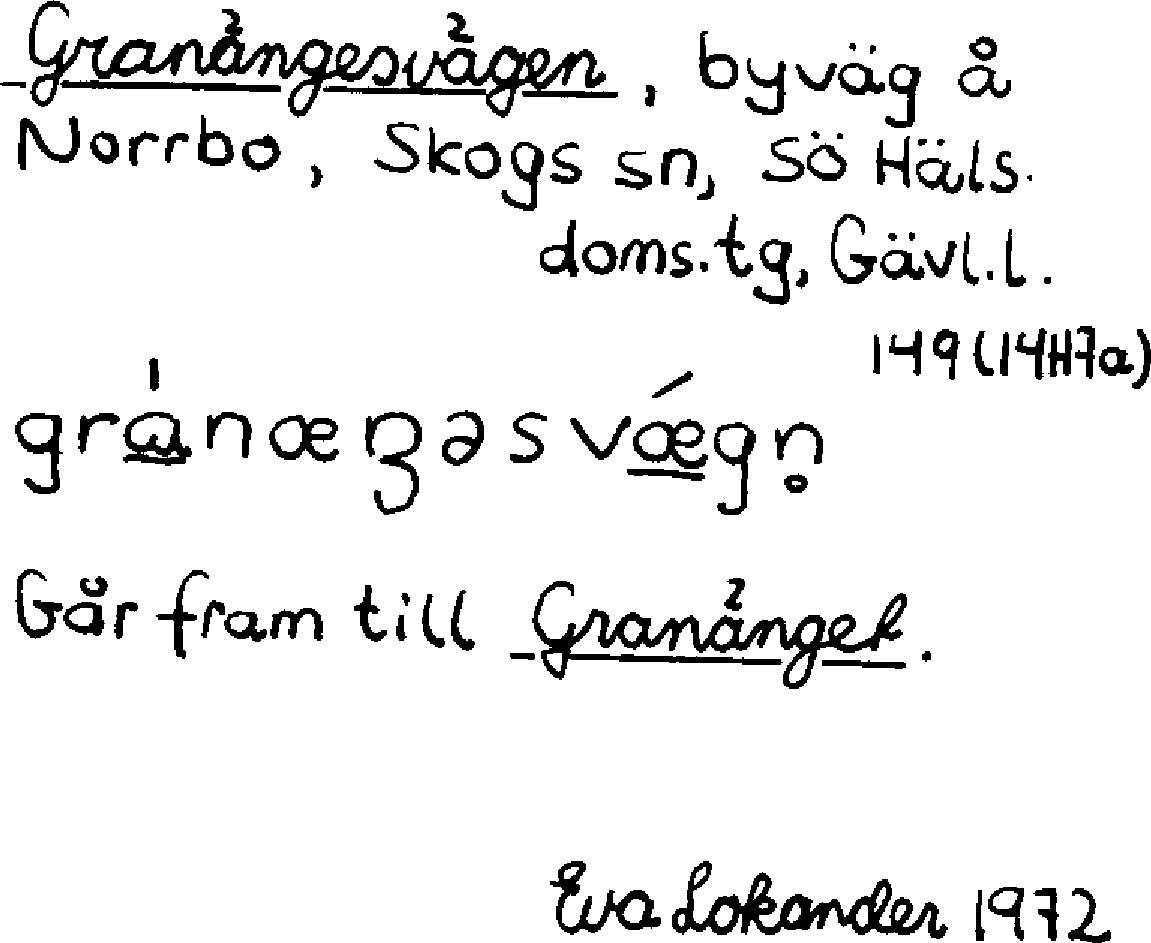 Granängesvägen, byväg å
Norrbo, Skogs sn, Sö Häls.
doms.tg, Gävl.l.
149 (14H7a)
gránæŋəsvǽgn̥
Går fram till Granänget.
Eva Lokander 1972